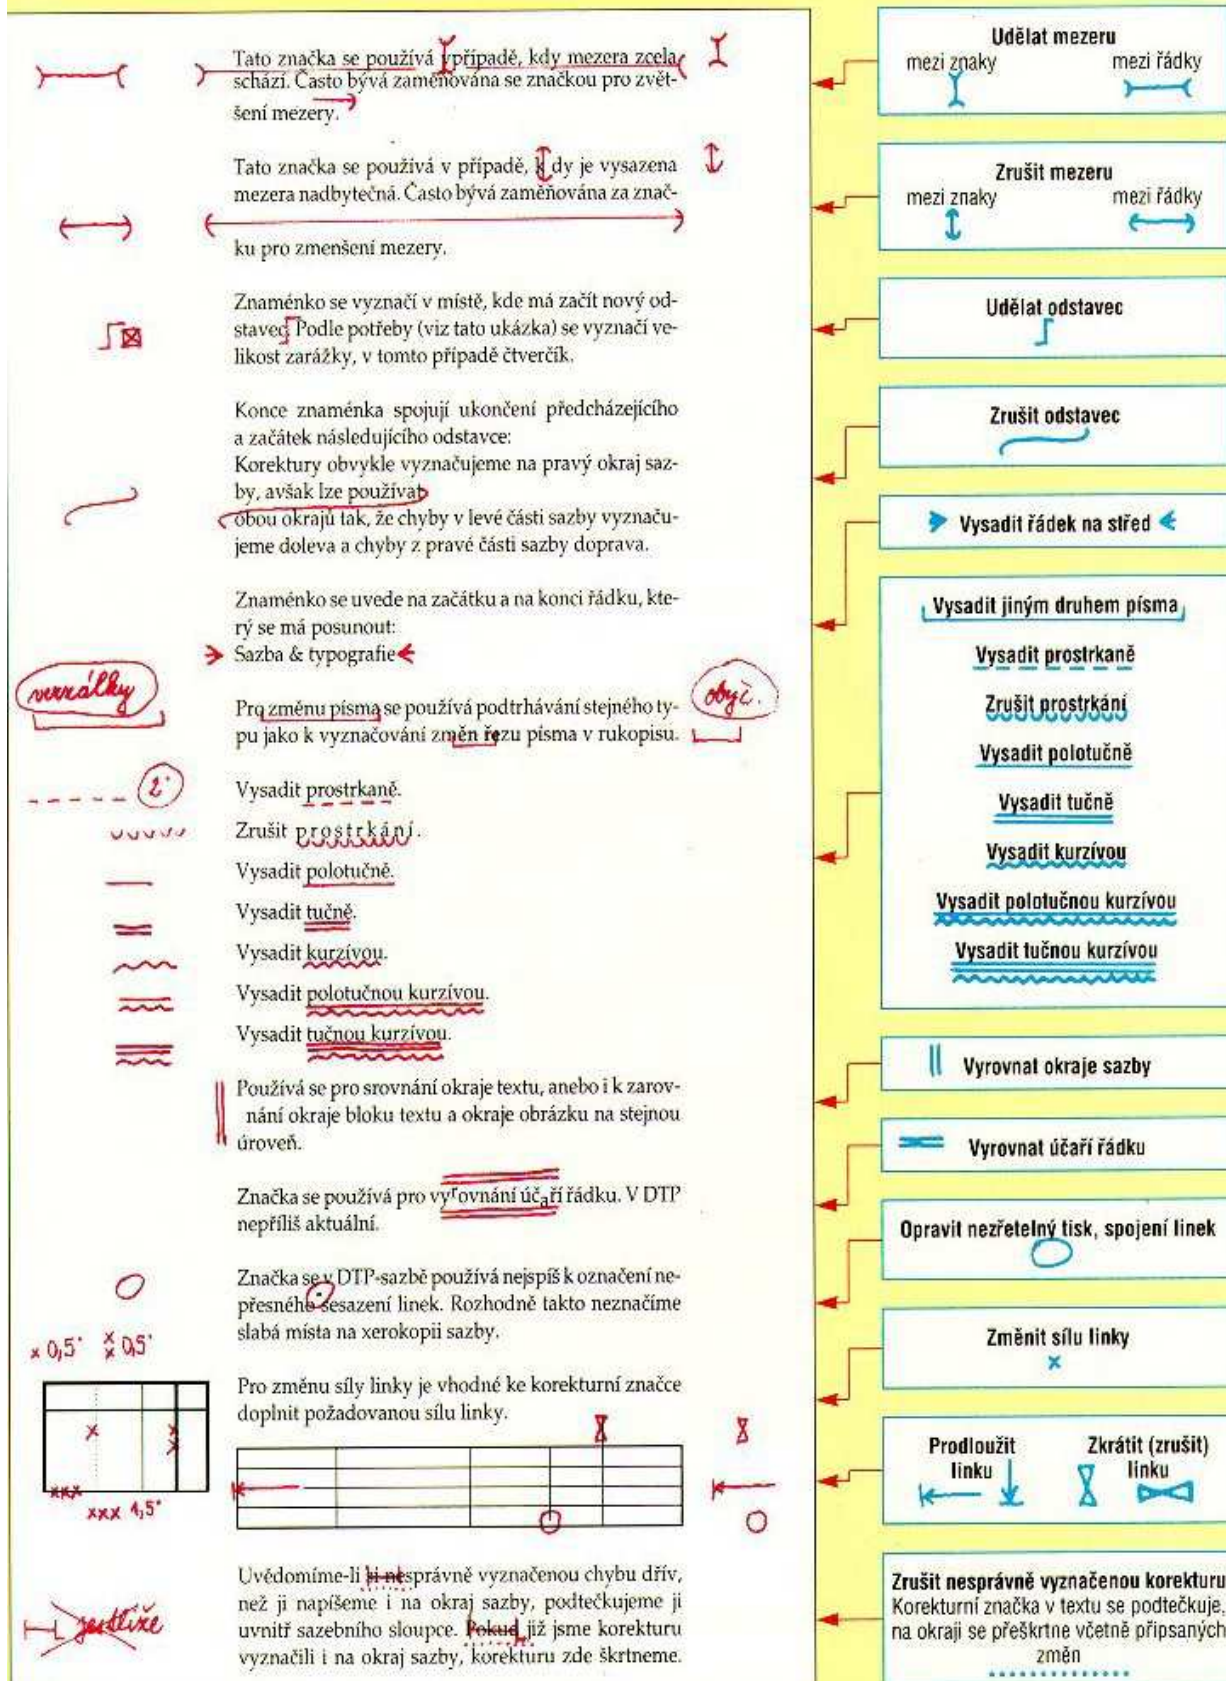 Tato značka se používá vpřípadě, kdy mezera zcela
schází. Často bývá zaměňována se značkou pro zvět-
šení mezery.
Tato značka se používá v případě, k dy je vysazena
mezera nadbytečná. Často bývá zaměňována za znač-
ku pro zmenšení mezery.
Znaménko se vyznačí v místě, kde má začít nový od-
stavec. Podle potřeby (viz tato ukázka) se vyznačí ve-
likost zarážky, v tomto případě čtverčík.
Konce znaménka spojují ukončení předcházejícího
a začátek následujícího odstavce:
Korektury obvykle vyznačujeme na pravý okraj saz-
by, avšak lze používat
obou okrajů tak, že chyby v levé části sazby vyznaču-
jeme doleva a chyby z pravé části sazby doprava.
Znaménko se uvede na začátku a na konci řádku, kte-
rý se má posunout:
Sazba & typografie
verzálky
obyč.
Pro změnu písma se používá podtrhávání stejného ty-
pu jako k vyznačování změn řezu písma v rukopisu.
2°
Vysadit prostrkaně.
Zrušit prostrkání.
Vysadit polotučně.
Vysadit tučně.
Vysadit kurzívou.
Vysadit polotučnou kurzívou.
Vysadit tučnou kurzívou.
Používá se pro srovnání okraje textu, anebo i k zarov-
nání okraje bloku textu a okraje obrázku na stejnou
úroveň.
Značka se používá pro vyrovnání účaří řádku. V DTP
nepříliš aktuální.
Značka se v DTP-sazbě používá nejspíš k označení ne-
přesného sesazení linek. Rozhodně takto neznačíme
slabá místa na xerokopii sazby.
x 0,5° x x 0,5°
Pro změnu síly linky je vhodné ke korekturní značce
doplnit požadovanou sílu linky.
xxx
xxx 1,5°
Uvědomíme-li si nesprávně vyznačenou chybu dřív,
než ji napíšeme i na okraj sazby, podtečkujeme ji
uvnitř sazebního sloupce. Pokud již jsme korekturu
vyznačili i na okraj sazby, korekturu zde škrtneme.
jestliže
Udělat mezeru
mezi znaky mezi řádky
Zrušit mezeru
mezi znaky mezi řádky
Udělat odstavec
Zrušit odstavec
Vysadit řádek na střed
Vysadit jiným druhem písma
Vysadit prostrkaně
Zrušit prostrkání
Vysadit polotučně
Vysadit tučně
Vysadit kurzívou
Vysadit polotučnou kurzívou
Vysadit tučnou kurzívou
Vyrovnat okraje sazby
Vyrovnat účaří řádku
Opravit nezřetelný tisk, spojení linek
Změnit sílu linky
x
Prodloužit
linku
Zkrátit (zrušit)
linku
Zrušit nesprávně vyznačenou korekturu
Korekturní značka v textu se podtečkuje,
na okraji se přeškrtne včetně připsaných
změn